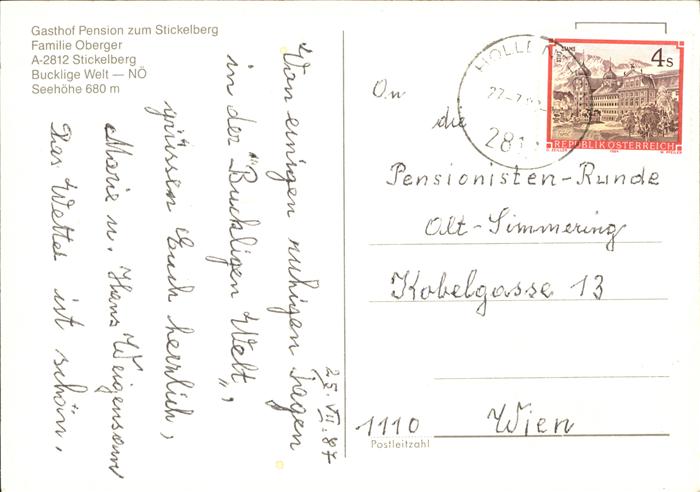 Gasthof Pension zum Stickelberg
Familie Oberger
A-2812 Stickelberg
Bucklige Welt — NÖ
Seehöhe 680 m
25. VII. 87
Von einigen ruhigen Tagen
in der „Buckligen Welt",
grüssen Euch herzlich,
Marie u. Hans
Das Wetter ist schön.
4 S
STIFT STAMS
REPUBLIK ÖSTERREICH
An
die
Pensionisten-Runde
Alt-Simmering
Kobelgasse 13
1110 Wien
Postleitzahl